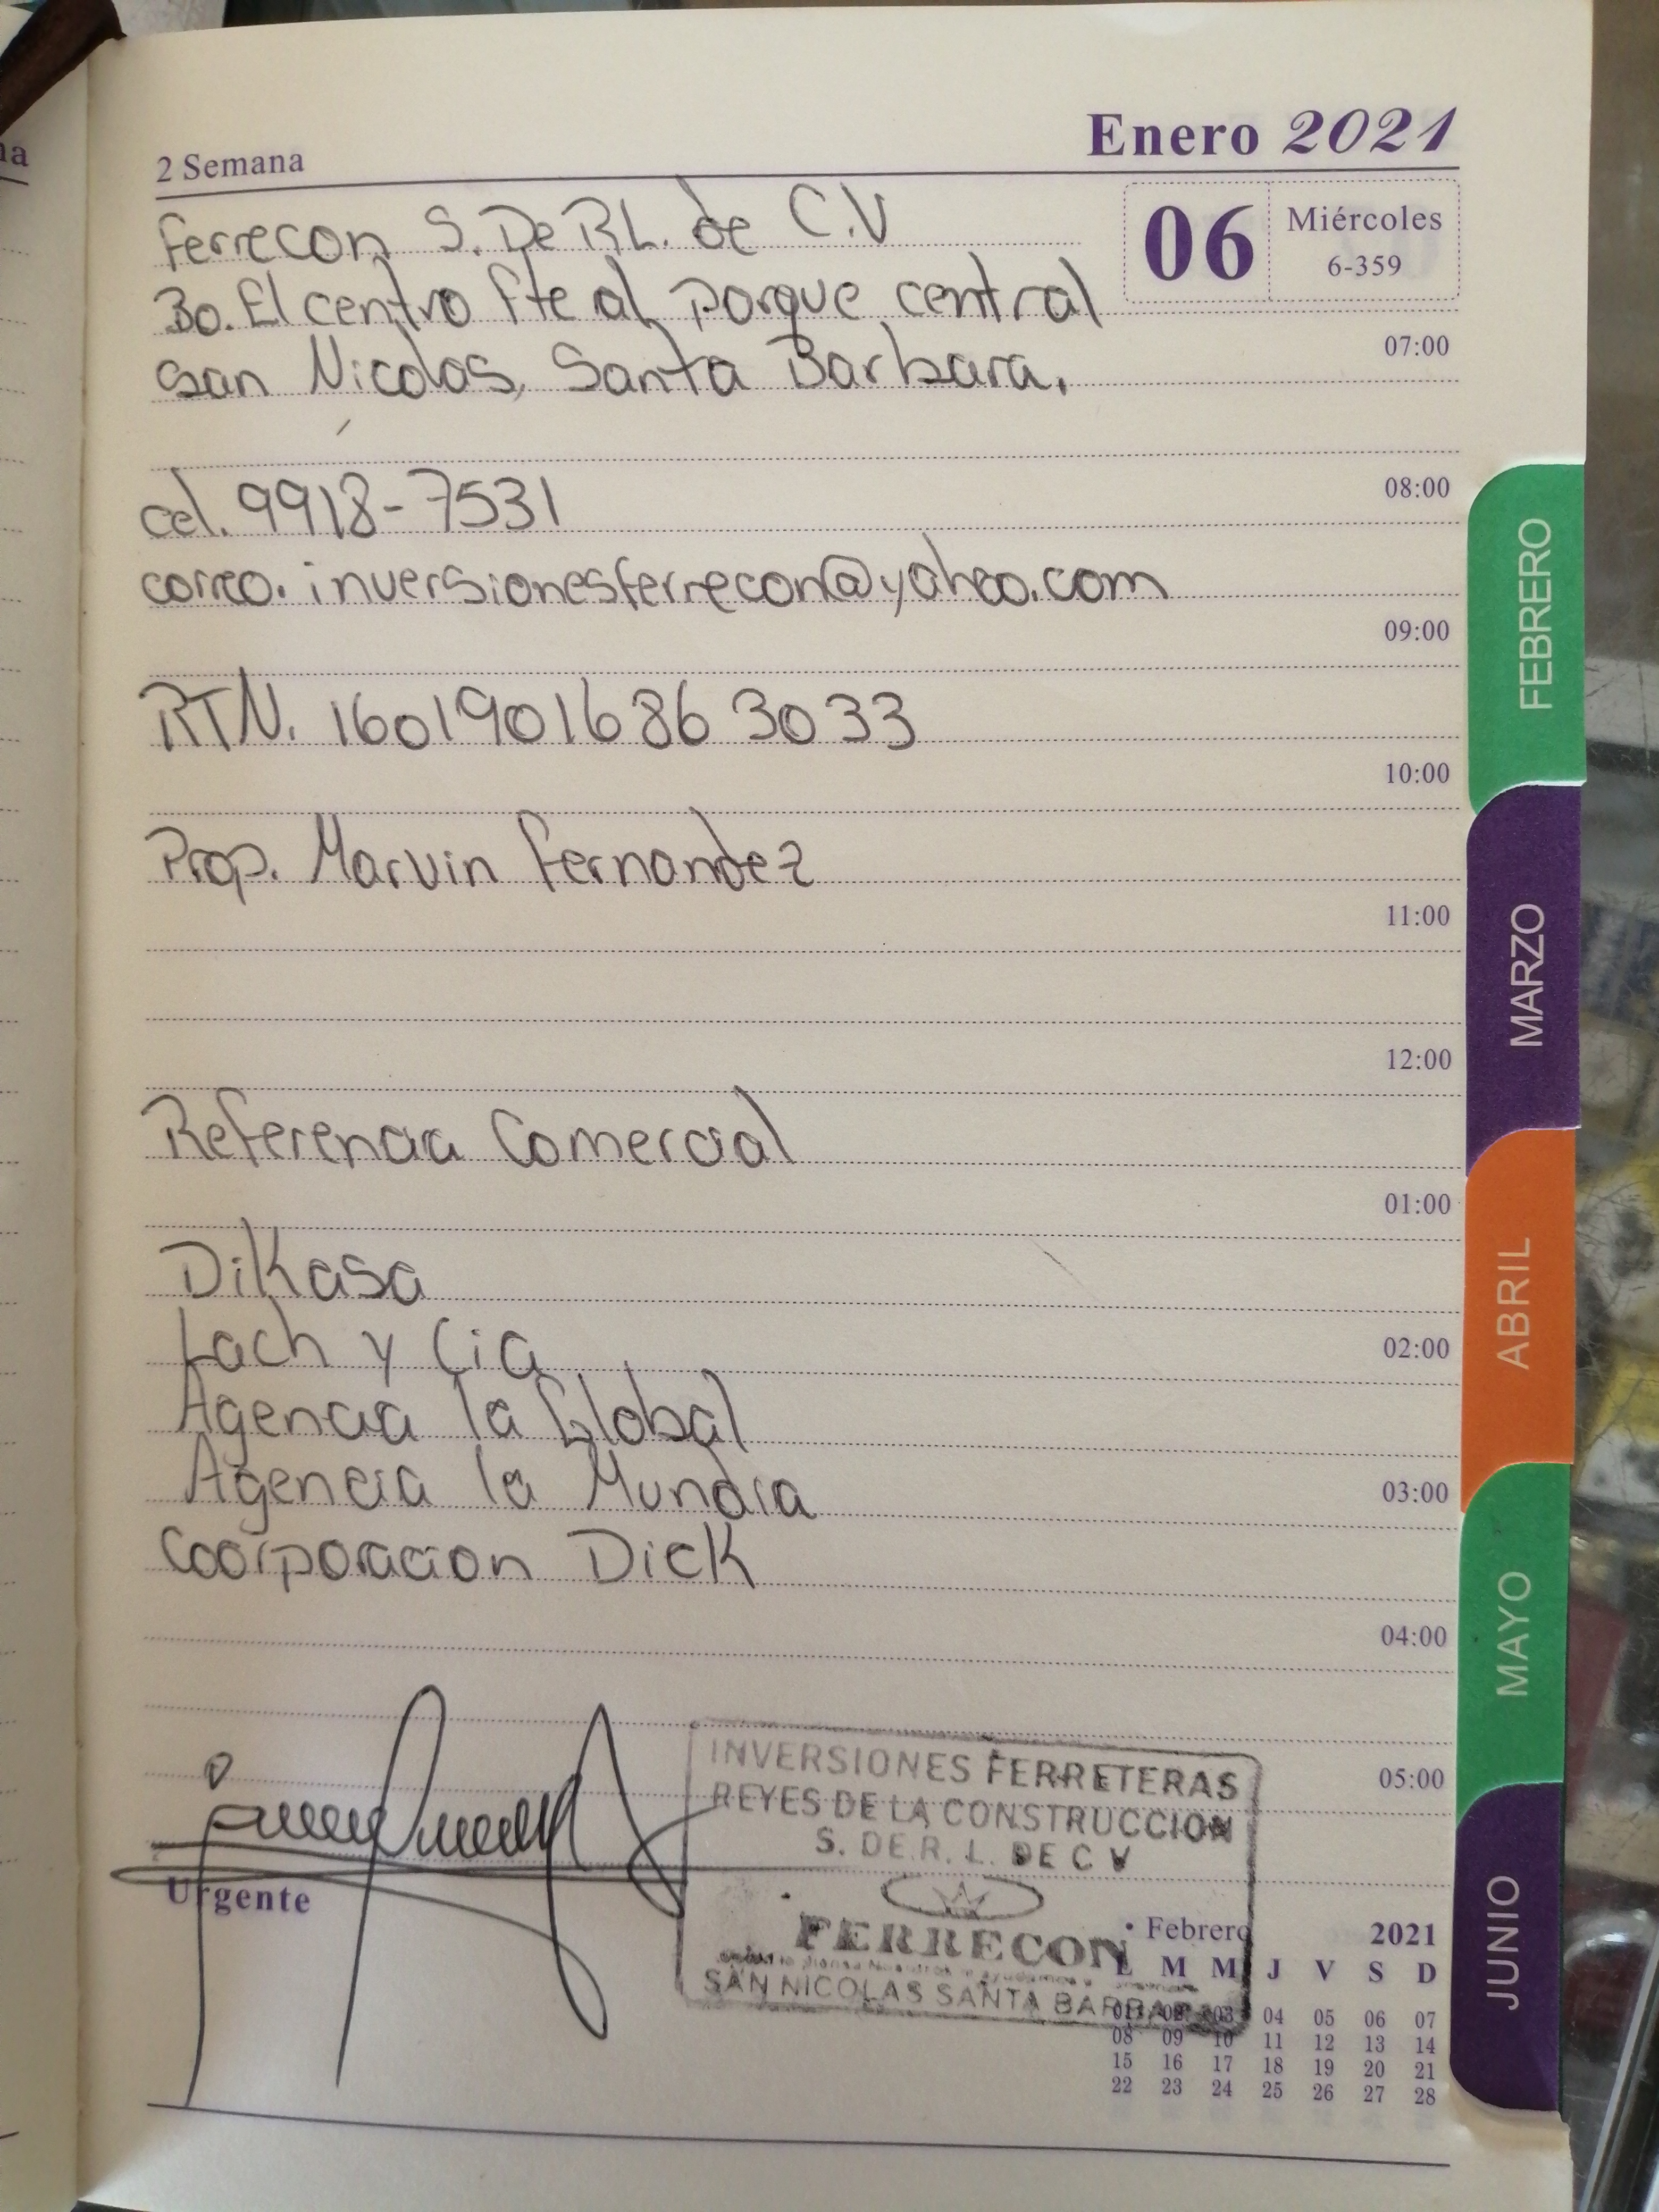 Enero 2021
2 Semana
06 Miércoles
6-359
Ferrecon S. De R.L. de C.V
Bo. El centro fte al parque central
San Nicolas, Santa Barbara.
07:00
08:00
cel. 9918-7531
correo. inversionesferrecon@yahoo.com
09:00
RTN. 16019016863033
10:00
Prop. Marvin Fernandez
11:00
12:00
Referencia Comercial
01:00
DiKasa
Lach y Cia
02:00
Agencia la Global
Agencia la Mundia
03:00
Coorporacion Dick
04:00
INVERSIONES FERRETERAS
REYES DE LA CONSTRUCCION
S. DE R. L. DE C V
05:00
Urgente
FERRECON
SAN NICOLAS SANTA BARBARA
Febrero 2021
L M M J V S D
01 02 03 04 05 06 07
08 09 10 11 12 13 14
15 16 17 18 19 20 21
22 23 24 25 26 27 28
FEBRERO
MARZO
ABRIL
MAYO
JUNIO